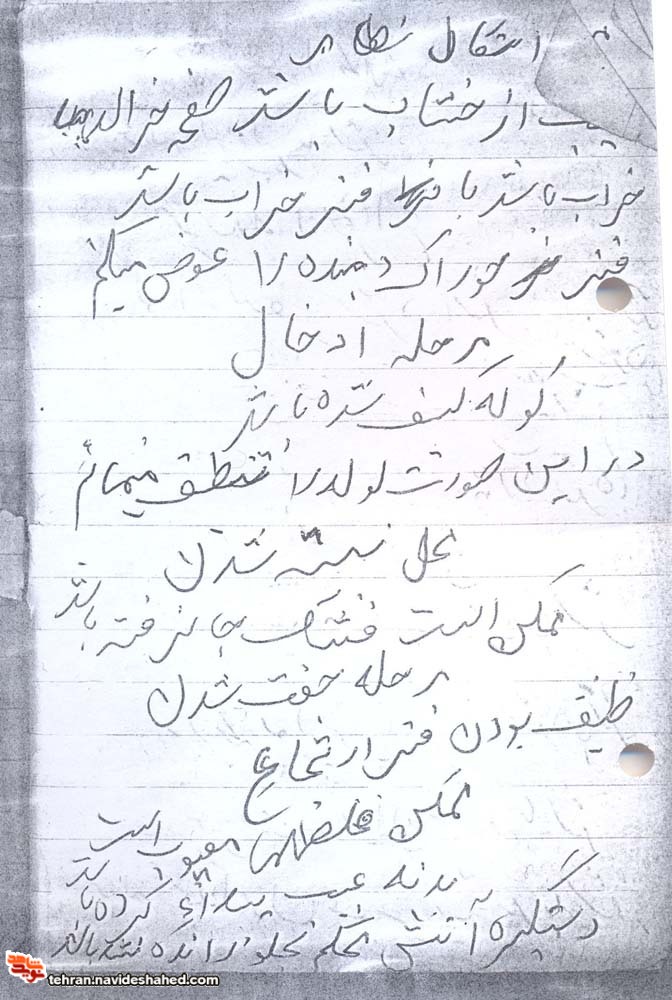 اشکال
از خشاب باشد صفحه
خراب باشد یا فنر خراب باشد
فنر خوراک دهنده را عوض میکنم
مرحله ادخال
گوله کثیف شده باشد
در این صورت لوله را نمیمائم
عمل بسته شدن
ممکن است فشنگ جا نرفته باشد
مرحله جفت شدن
ضعیف بودن فنر ارتجاع
ممکن معیوب است
بدنه عیب پیدا کرده باشد
دستگیره آتش محکم بجلو رانده نشده باشد
نوید شاهد
tehran.navideshahed.com